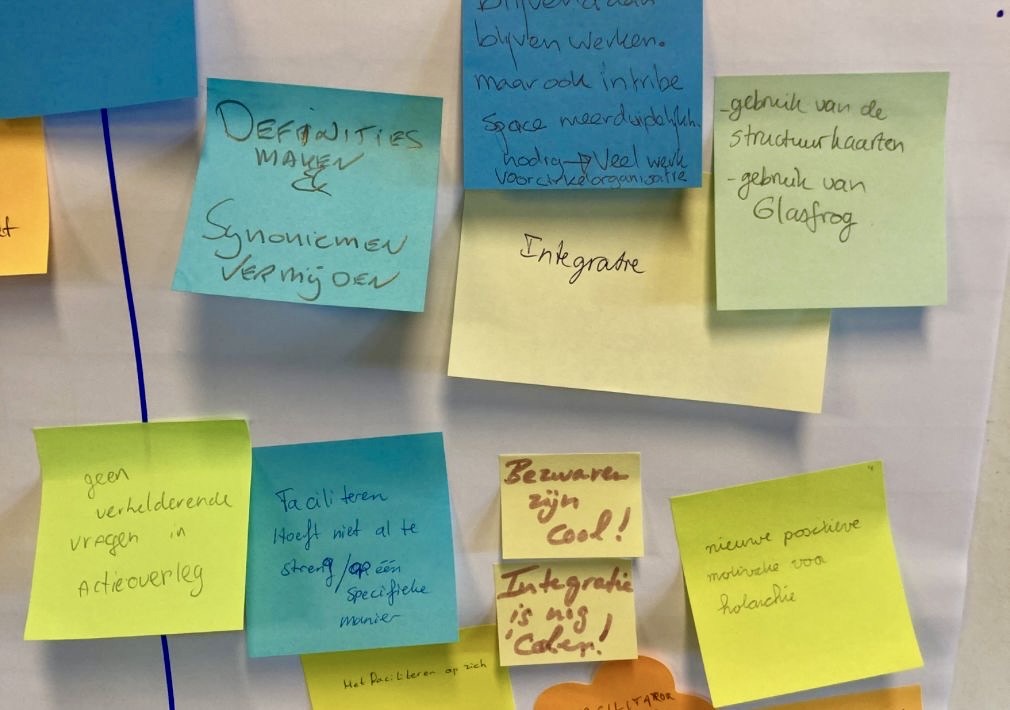 blijven werken.
maar ook in tribe
space meerduidelijkh.
nodig → Veel werk
voor cirkelorganisatie
DEFINITIES
MAKEN
&
SYNONIEMEN
VERMIJDEN
Integratie
- gebruik van de
structuurkaarten
- gebruik van
Glasfrog
geen
verhelderende
vragen in
Actieoverleg
Faciliteren
Hoeft niet al te
streng/op één
specifieke
manier
Bezwaren
zijn
cool!
Integratie
is nog
'coler!
nieuwe positieve
motivatie voor
holarchie
Het faciliteren op zich